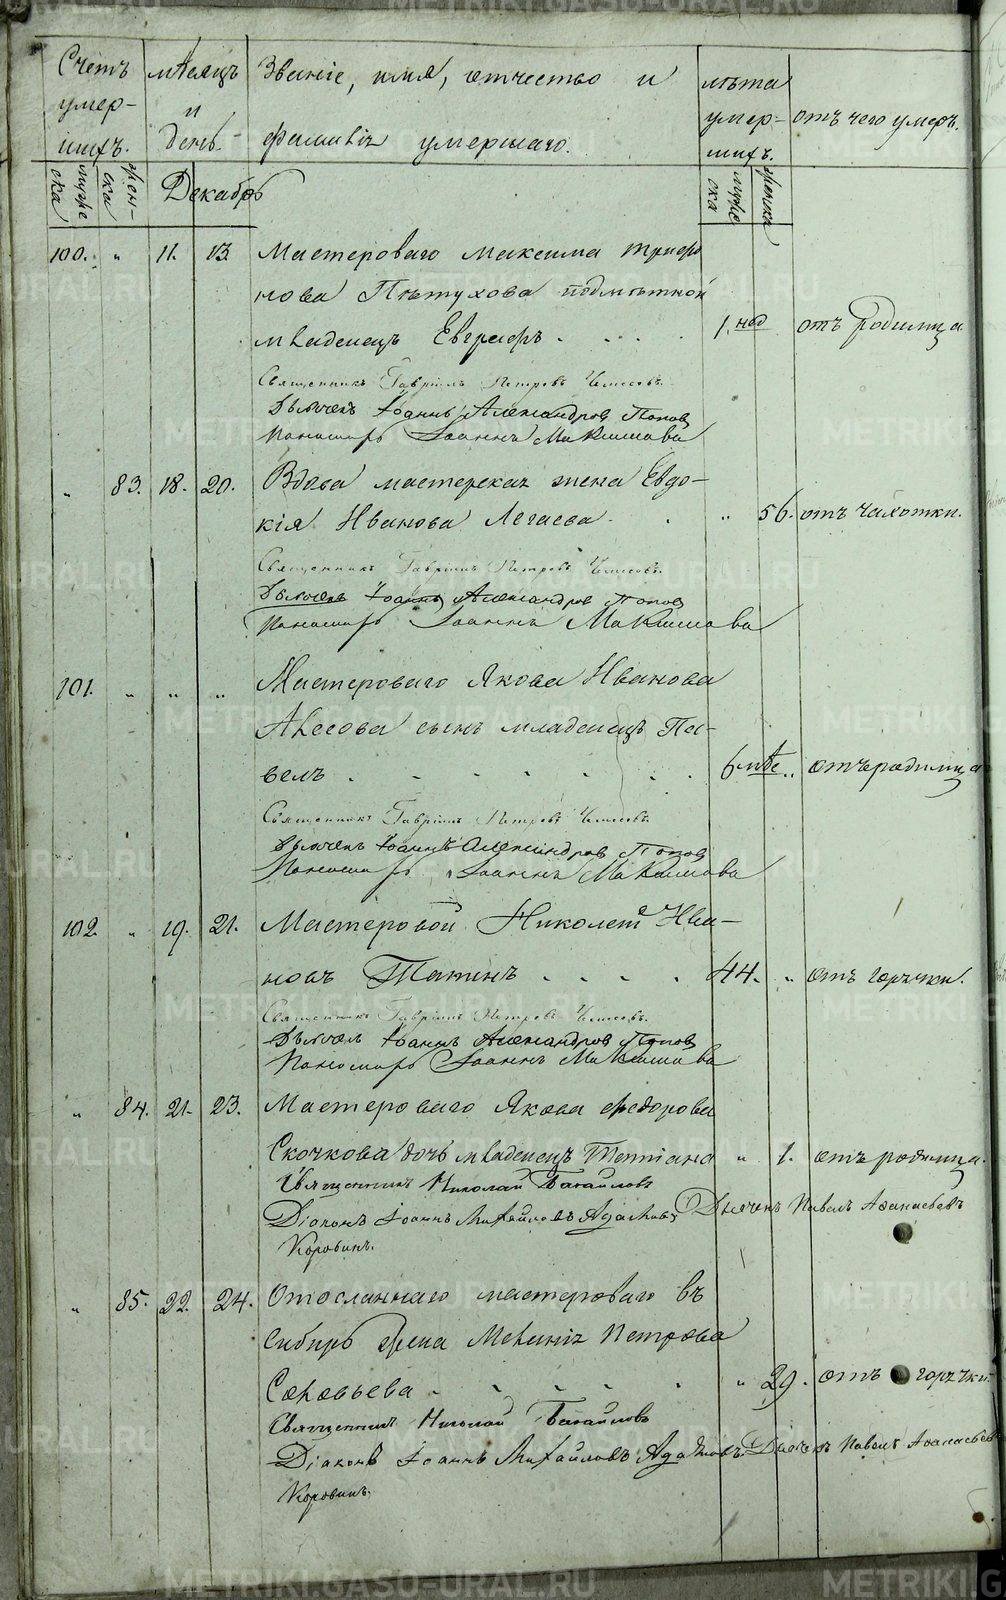 Счетъ умер- шихъ.
мѣсяцъ и день.
Званіе, имя, отчество и
фамилія умершаго.
лѣта умер- шихъ.
отъ чего умеръ.
муже ска
жен- ска
Декабрь
муже ска
женска
100. „ 11. 13. Мастероваго Максима Трифо
нова Пѣтухова
младенецъ Евграфъ . . . . 1. нед отъ родимца
Священникъ Гавріилъ Петровъ
Дьячекъ Іоаннъ Александровъ Поповъ
Пономарь Іоаннъ Макшиова
„ 83. 18. 20. Вдова мастерская жена Евдо-
кія Иванова Легаева . . „ 56. отъ чахотки.
Священникъ Гавріилъ Петровъ
Дьячекъ Іоаннъ Александровъ Поповъ
Пономарь Іоаннъ
101. „ „ „ Мастероваго Якова Иванова
сынъ младенецъ Па-
велъ . . . . . . . 6 мѣс „ отъ родимца
Священникъ Гавріилъ Петровъ
Дьячекъ Іоаннъ Александровъ Поповъ
Пономарь Іоаннъ
102. „ 19. 21. Мастеровой Николай Ива-
новъ Татинъ . . . . 44. „ отъ горячки.
Священникъ Гавріилъ Петровъ
Дьячекъ Іоаннъ Александровъ Поповъ
Пономарь Іоаннъ
„ 84. 21. 23. Мастероваго Якова Федорова
Скочкова дочь младенецъ Татіана „ 1. отъ родимца.
Священникъ Николай
Діаконъ Іоаннъ Михайловъ Дьячекъ Павелъ Афанасьевъ
Коровинъ.
„ 85. 22. 24. Отосланнаго мастероваго въ
Сибирь жена Меланія Петрова
Соловьева . . . . . „ 29. отъ горячки.
Священникъ Николай
Діаконъ Іоаннъ Михайловъ Дьячекъ Павелъ Афанасьевъ
Коровинъ.
METRIKI.GASO-URAL.RU